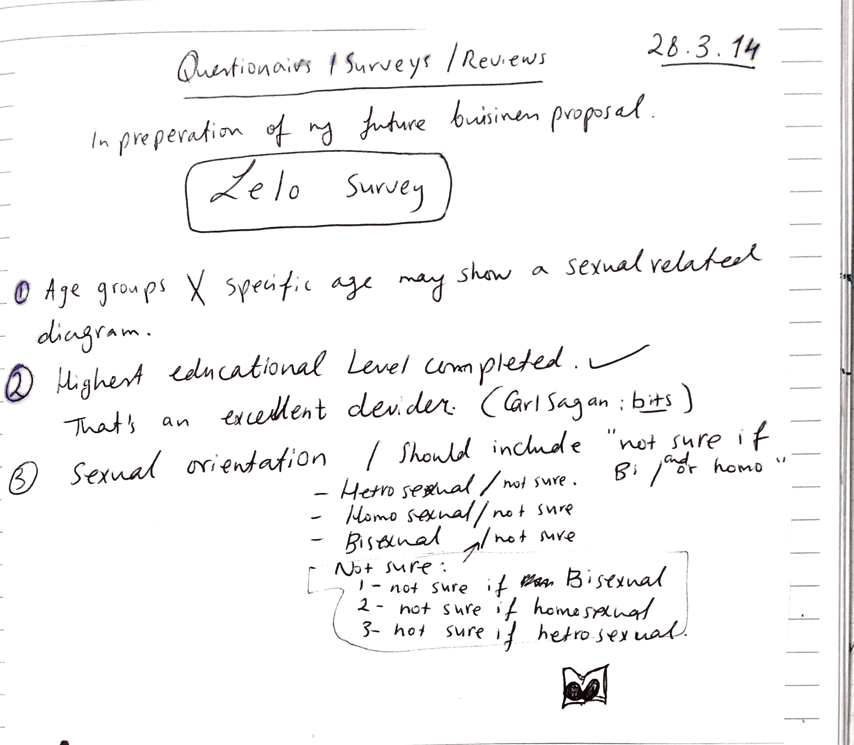 28.3.14
Questionairs / Surveys / Reviews
In preperation of my future buisiness proposal.
Lelo Survey
① Age groups X specific age may show a sexual related
diagram.
② Highest educational Level completed. ✓
That's an excellent devider. (Carl Sagan : bits)
③ Sexual orientation / Should include "not sure if
Bi / and or homo"
- Hetro sexual / not sure.
- Homo sexual / not sure
- Bisexual / not sure
- Not sure :
1 - not sure if Bisexual
2 - not sure if homesexual
3 - not sure if hetrosexual.